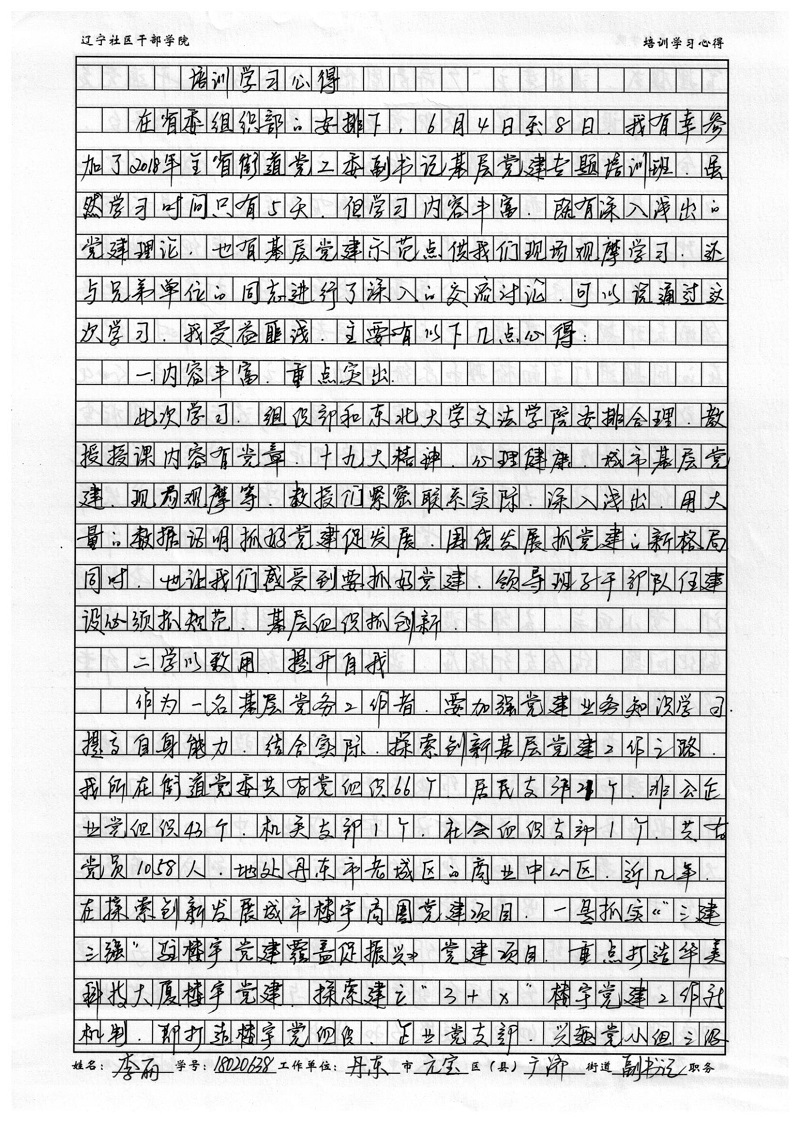 辽宁社区干部学院 培训学习心得
培训学习心得
在省委组织部的安排下，6月4日至8日，我有幸参
加了2018年全省街道党工委副书记基层党建专题培训班，虽
然学习时间只有5天，但学习内容丰富，既有深入浅出的
党建理论，也有基层党建示范点供我们现场观摩学习，还
与兄弟单位的同志进行了深入的交流讨论，可以说通过这
次学习，我受益匪浅，主要有以下几点心得：
一、内容丰富，重点突出
此次学习，组织部和东北大学文法学院安排合理，教
授授课内容有党章、十九大精神、心理健康、城市基层党
建、现场观摩等，教授们紧密联系实际，深入浅出，用大
量的数据证明抓好党建促发展，围绕发展抓党建的新格局
同时，也让我们感受到要抓好党建，领导班子干部队伍建
设必须抓规范，基层组织抓创新。
二学以致用，提升自我
作为一名基层党务工作者，要加强党建业务知识学习
提高自身能力，结合实际，探索创新基层党建工作之路。
我所在街道党委共有党组织66个，居民支部21个，非公企
业党组织43个，机关支部1个，社会组织支部1个，共有
党员1058人，地处丹东市老城区的商业中心区，近几年，
在探索创新发展城市楼宇商圈党建项目，一是抓实《“三建
三强”驻楼宇党建覆盖促振兴》党建项目，重点打造华美
科技大厦楼宇党建，探索建立“3+x”楼宇党建工作新
机制，即打造楼宇党组织、企业党支部、兴趣党小组三级
姓名：李丽 学号：18020638 工作单位：丹东 市 元宝 区（县） 广济 街道 副书记 职务